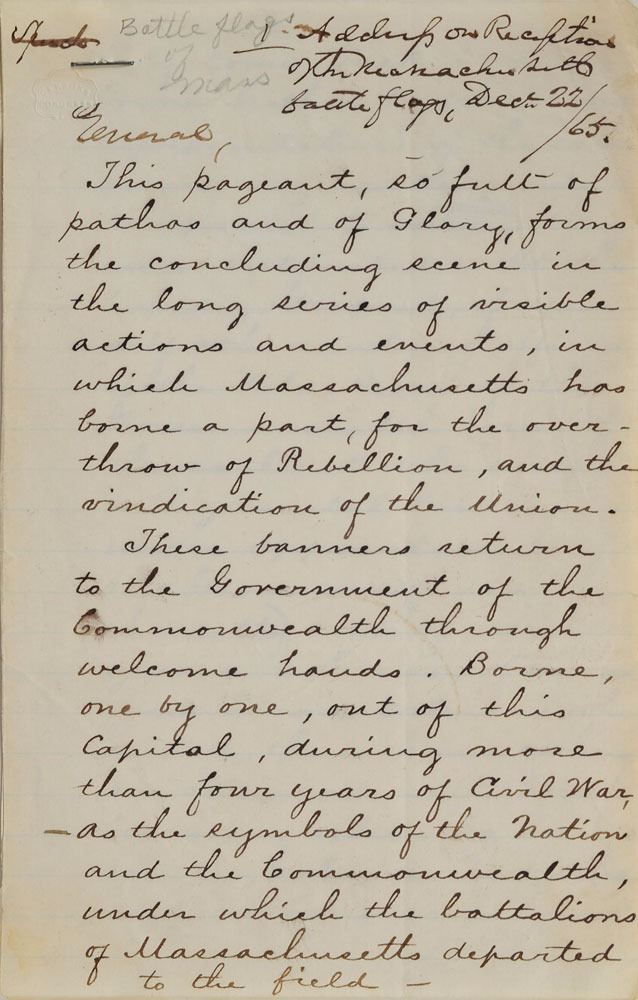 Battle flags
of
Mass
I. Address on Reception
of the Massachusetts
battle flags, Decr. 22/65.
General,
This pageant, so full of
pathos and of Glory, forms
the concluding scene in
the long series of visible
actions and events, in
which Massachusetts has
borne a part, for the over-
throw of Rebellion, and the
vindication of the Union.
These banners return
to the Government of the
Commonwealth through
welcome hands. Borne,
one by one, out of this
Capital, during more
than four years of Civil War,
— as the symbols of the Nation
and the Commonwealth,
under which the battalions
of Massachusetts departed
to the field —